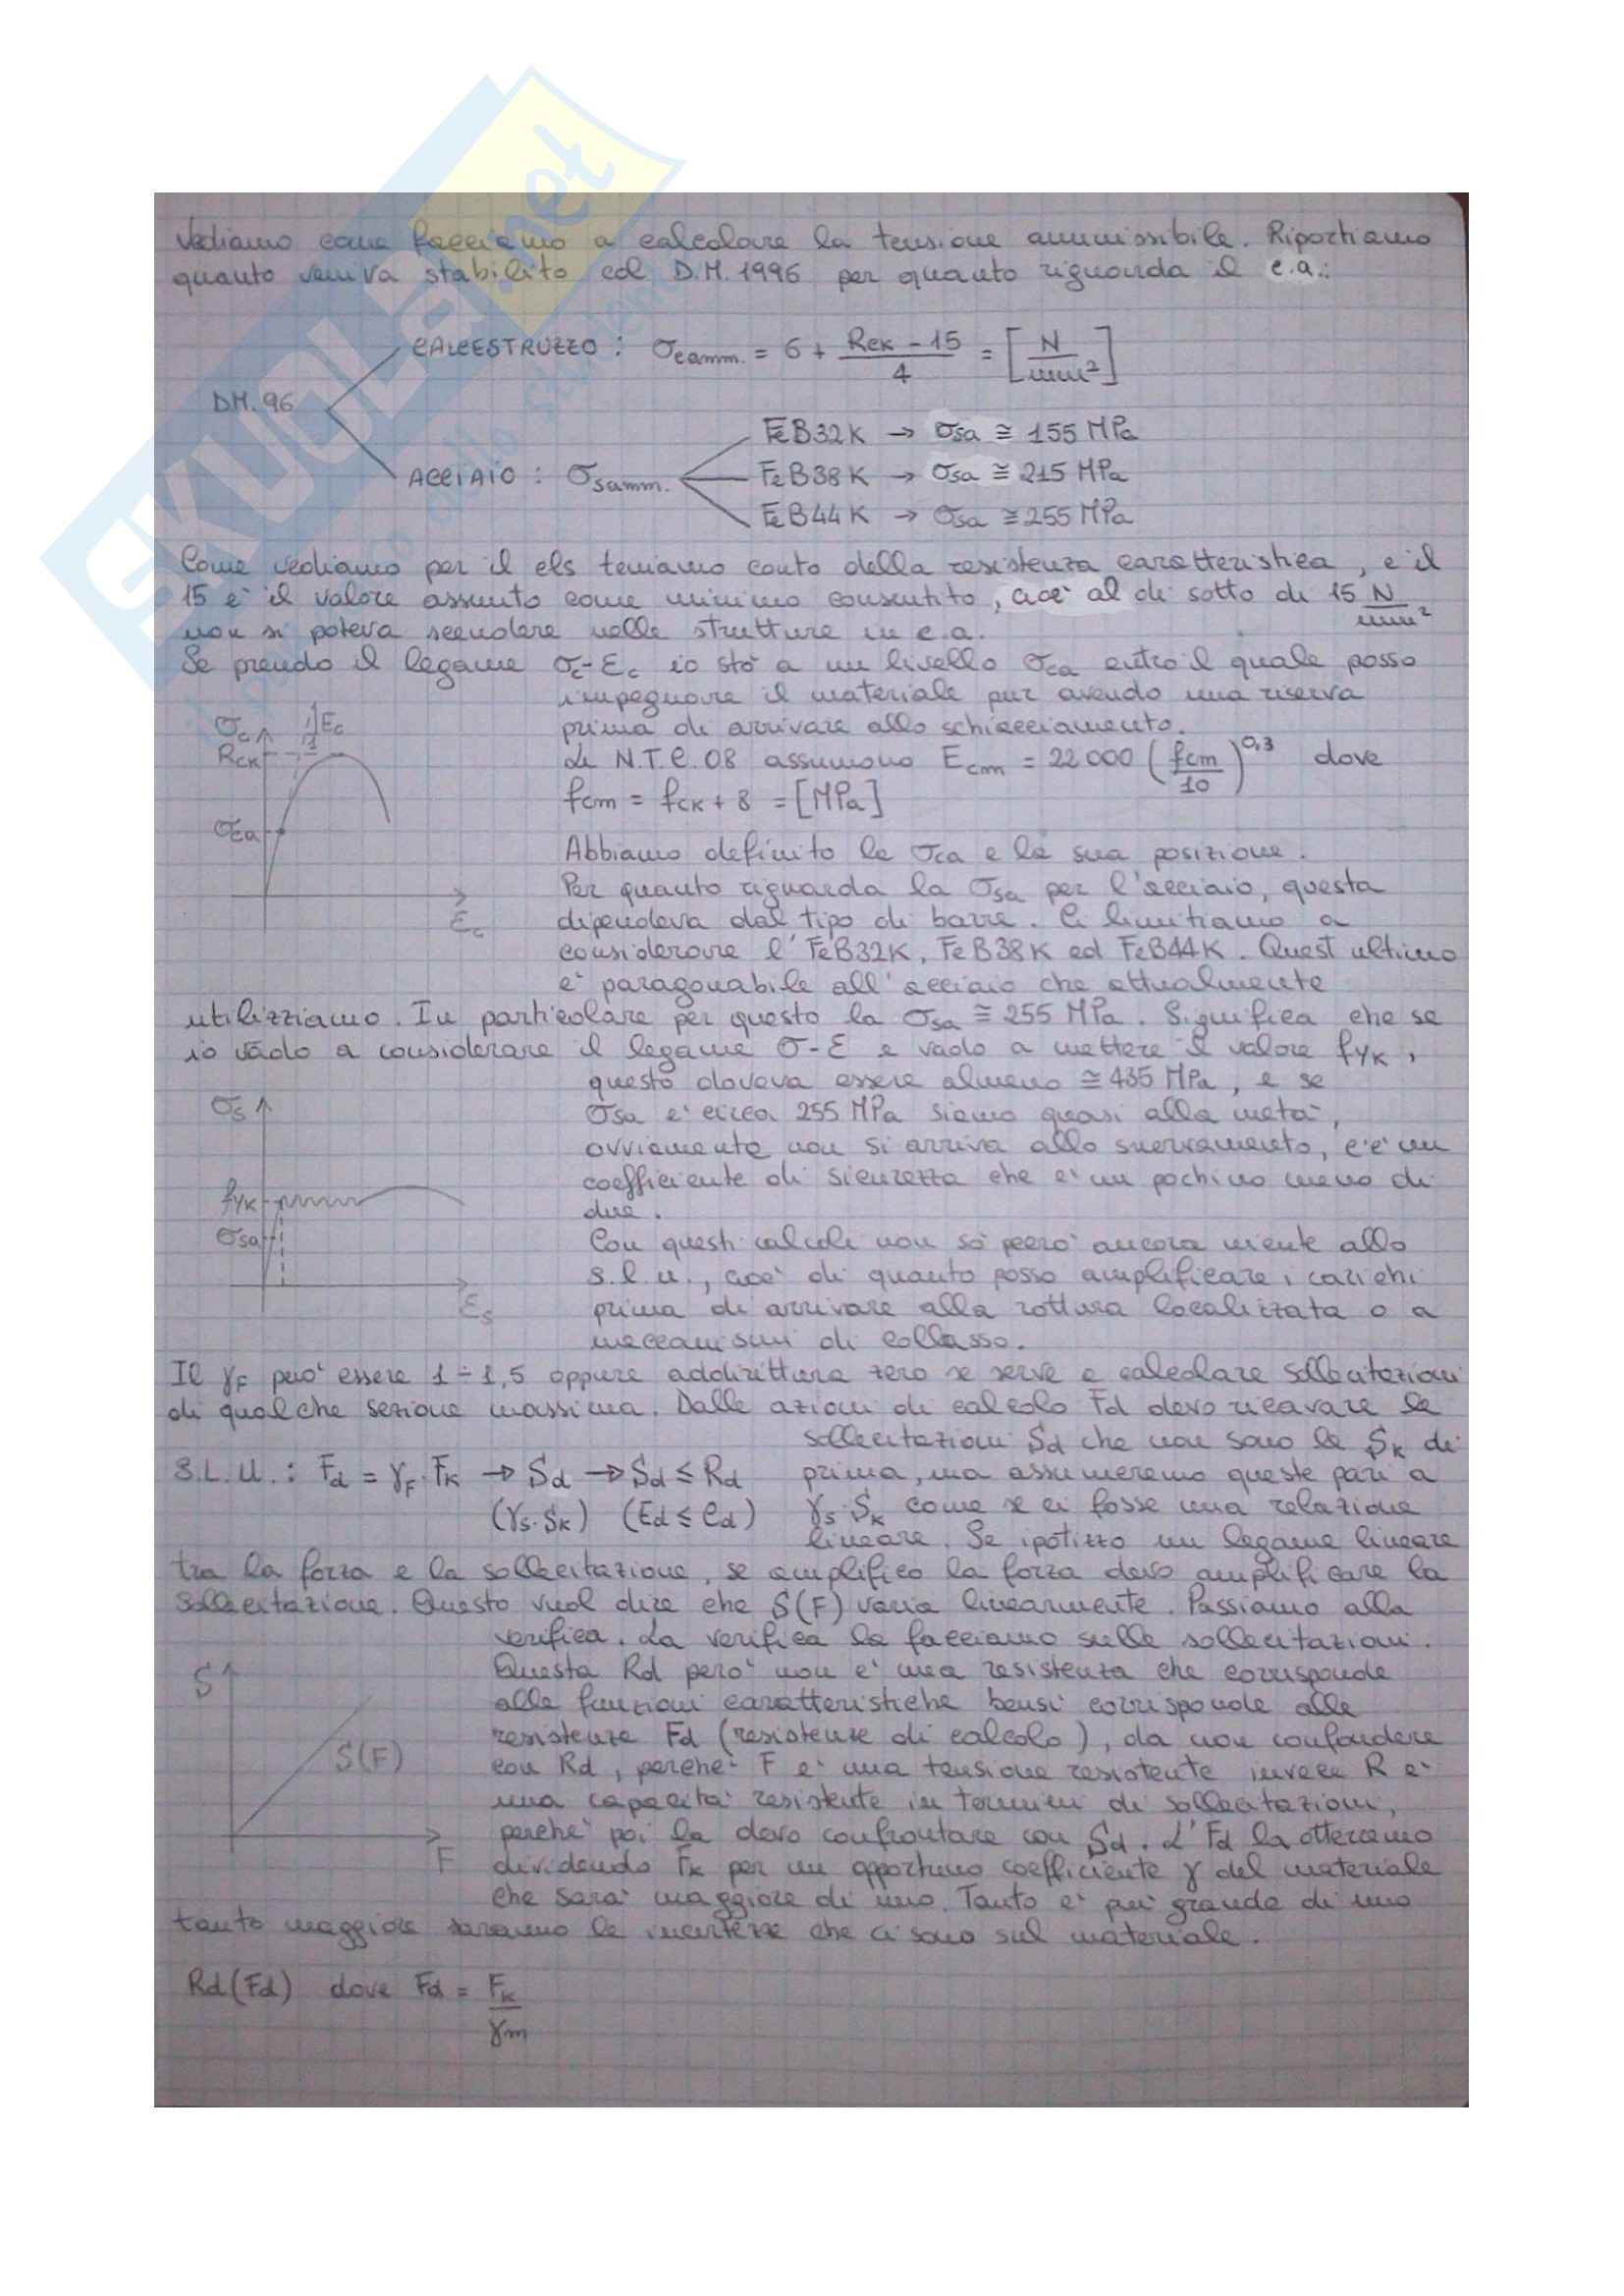 SKUOLA.net
Vediamo come facciamo a calcolare la tensione ammissibile. Riportiamo
quanto veniva stabilito col D.M. 1996 per quanto riguarda il c.a.:
CALCESTRUZZO : σcamm. = 6 + (Rck - 15)/4 = [N/mm²]
DM. 96
FeB32K → σsa ≅ 155 MPa
ACCIAIO : σsamm. FeB38K → σsa ≅ 215 MPa
FeB44K → σsa ≅ 255 MPa
Come vediamo per il cls teniamo conto della resistenza caratteristica, e il
15 è il valore assunto come minimo consentito, cioè al di sotto di 15 N/mm²
non si poteva scendere nelle strutture in c.a.
Se prendo il legame σc-Ec io stò a un livello σca entro il quale posso
impegnare il materiale pur avendo una riserva
prima di arrivare allo schiacciamento.
σc Ec
1
Rck
Le N.T.C. 08 assumono Ecm = 22000 (fcm/10)^0,3 dove
fcm = fck + 8 = [MPa]
σca
Abbiamo definito la σca e la sua posizione.
Per quanto riguarda la σsa per l'acciaio, questa
Ec
dipendeva dal tipo di barre. Ci limitiamo a
considerare l' FeB32K, FeB38K ed FeB44K. Quest ultimo
è paragonabile all' acciaio che attualmente
utilizziamo. In particolare per questo la σsa ≅ 255 MPa. Significa che se
io vado a considerare il legame σ-E e vado a mettere il valore fyk,
questo doveva essere almeno ≅ 435 MPa, e se
σs
σsa è circa 255 MPa siamo quasi alla metà,
ovviamente non si arriva allo snervamento, c'è un
coefficiente di sicurezza che è un pochino meno di
fyk
due.
σsa
Con questi calcoli non sò però ancora niente allo
s.l.u., cioè di quanto posso amplificare i carichi
Es
prima di arrivare alla rottura localizzata o a
meccanismi di collasso.
Il γF può essere 1 ÷ 1,5 oppure addirittura zero se serve a calcolare sollecitazioni
di qualche sezione massima. Dalle azioni di calcolo Fd devo ricavare le
sollecitazioni Sd che non sono le Sk di
S.L.U. : Fd = γF · Fk → Sd → Sd ≤ Rd prima, ma assumeremo queste pari a
(γs·Sk) (Ed ≤ Cd) γs·Sk come se ci fosse una relazione
lineare. Se ipotizzo un legame lineare
tra la forza e la sollecitazione, se amplifico la forza devo amplificare la
sollecitazione. Questo vuol dire che S(F) varia linearmente. Passiamo alla
verifica. La verifica la facciamo sulle sollecitazioni.
S
Questa Rd però non è una resistenza che corrisponde
alle funzioni caratteristiche bensì corrisponde alle
resistenze Fd (resistenze di calcolo), da non confondere
S(F)
con Rd, perchè F è una tensione resistente invece R è
una capacità resistente in termini di sollecitazioni,
perchè poi la devo confrontare con Sd. L' Fd la otteniamo
F
dividendo Fk per un opportuno coefficiente γ del materiale
che sarà maggiore di uno. Tanto è più grande di uno
tanto maggiore saranno le incertezze che ci sono sul materiale.
Rd(Fd) dove Fd = Fk/γm